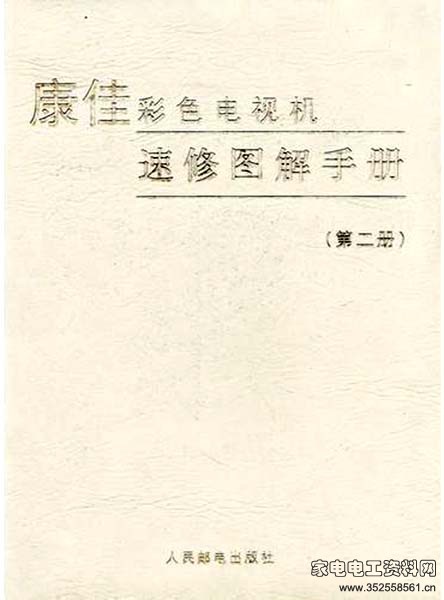 康佳彩色电视机
速修图解手册
（第二册）
人民邮电出版社
家电电工资料网
www.352558561.cn